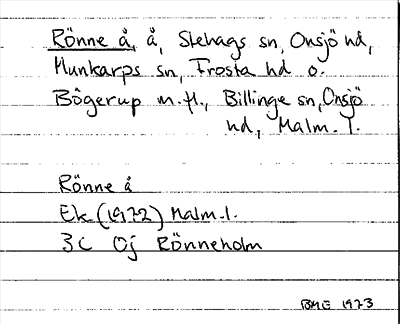 Rönne å, å, Stehags sn, Onsjö hd,
Munkarps sn, Frosta hd o.
Bögerup m.fl., Billinge sn, Onsjö
hd, Malm. l.
Rönne å
Ek (1972) Malm. l.
3C Öj Rönneholm
BME 1973